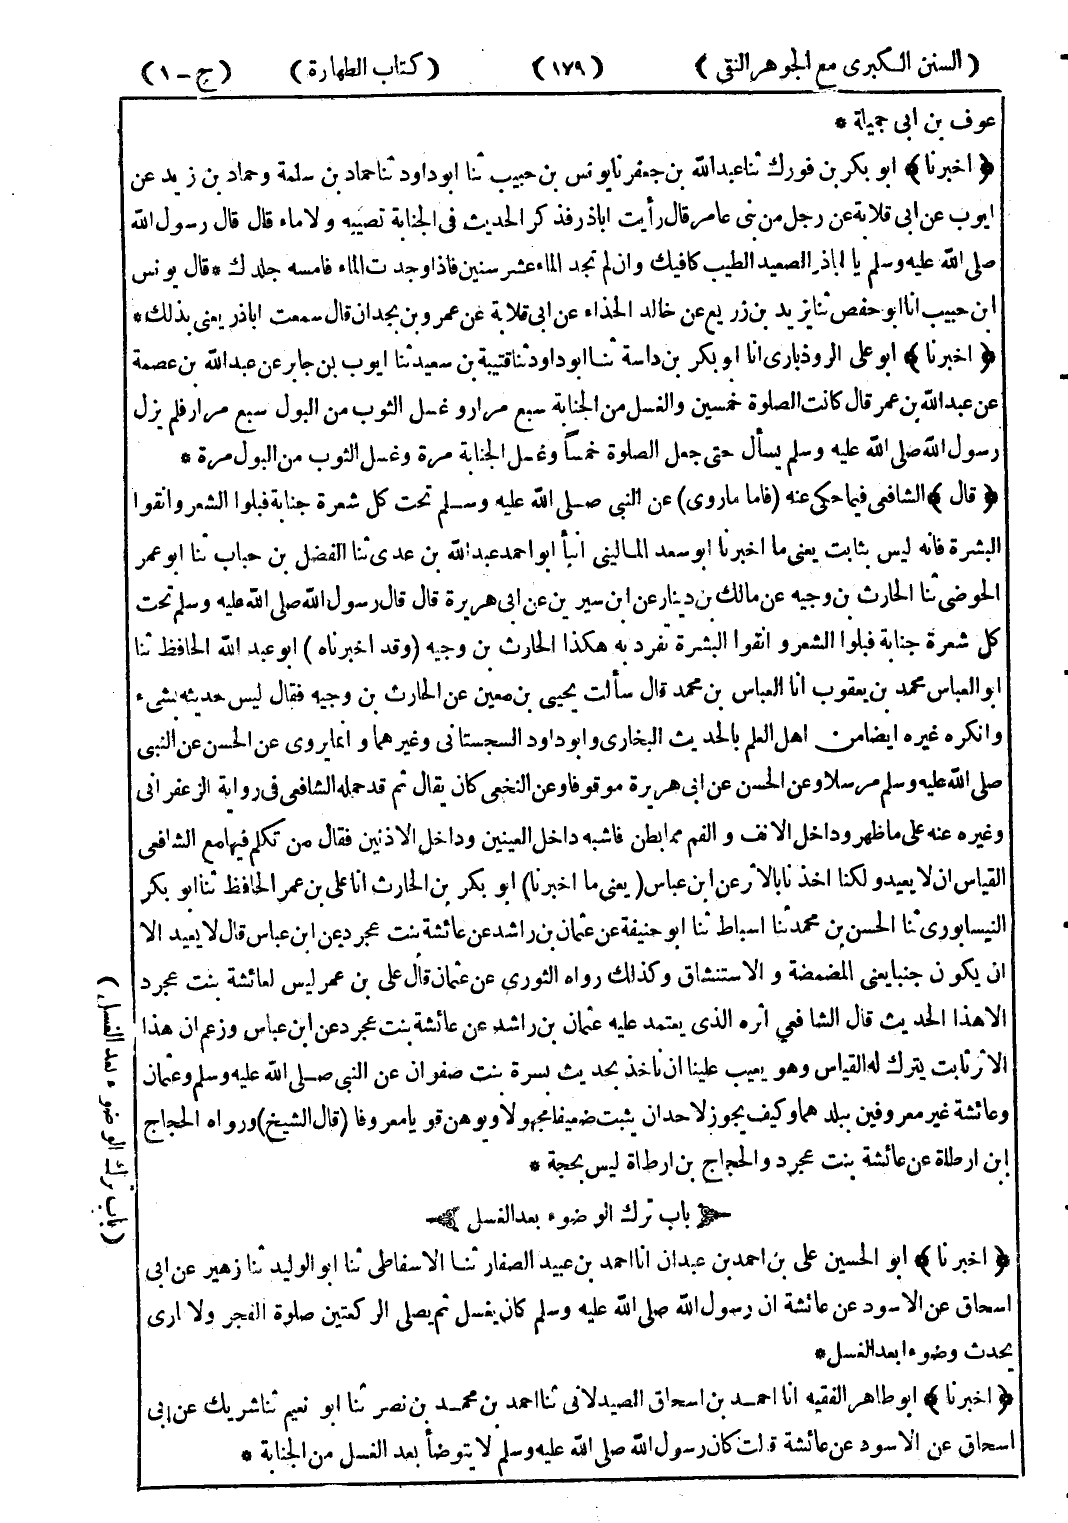 ( السنن الكبرى مع الجوهر النقى ) (١٧٩) ( كتاب الطهارة ) ( ج - ١ )
عوف بن ابى جميلة *
﴿ اخبرنا ﴾ ابو بكر بن فورك ثنا عبد الله بن جعفر نا يونس بن حبيب ثنا ابو داود ثنا حماد بن سلمة وحماد بن زيد عن
ايوب عن ابى قلابة عن رجل من بنى عامر قال رأيت اباذر فذكر الحديث فى الجنابة تصيبه ولا ماء قال قال رسول الله
صلى الله عليه وسلم يا اباذر الصعيد الطيب كافيك وان لم تجد الماء عشر سنين فاذا وجدت الماء فامسه جلدك * قال يونس
ابن حبيب انا ابو حفص ثنا يزيد بن زريع عن خالد الحذاء عن ابى قلابة عن عمرو بن بجدان قال سمعت اباذر يعنى بذلك *
﴿ اخبرنا ﴾ ابو على الروذبارى انا ابو بكر بن داسة ثنا ابو داود ثنا قتيبة بن سعيد ثنا ايوب بن جابر عن عبد الله بن عصمة
عن عبد الله بن عمر قال كانت الصلوة خمسين والغسل من الجنابة سبع مرار و غسل الثوب من البول سبع مرار فلم يزل
رسول الله صلى الله عليه وسلم يسأل حتى جعل الصلوة خمساً وغسل الجنابة مرة وغسل الثوب من البول مرة *
﴿ قال ﴾ الشافعى فيما حكى عنه (فاما ما روى) عن النبى صلى الله عليه وسلم تحت كل شعرة جنابة فبلوا الشعر وانقوا
البشرة فانه ليس بثابت يعنى ما اخبرنا ابو سعد المالينى انبأ ابو احمد عبد الله بن عدى ثنا الفضل بن حباب ثنا ابو عمر
الحوضى ثنا الحارث بن وجيه عن مالك بن دينار عن ابن سيرين عن ابى هريرة قال قال رسول الله صلى الله عليه وسلم تحت
كل شعرة جنابة فبلوا الشعر و انقوا البشرة تفرد به هكذا الحارث بن وجيه (وقد اخبرناه ) ابو عبد الله الحافظ ثنا
ابو العباس محمد بن يعقوب انا العباس بن محمد قال سألت يحيى بن معين عن الحارث بن وجيه فقال ليس حديثه بشىء
وانكره غيره ايضا من اهل العلم بالحديث البخارى وابو داود السجستانى وغيرهما و انما يروى عن الحسن عن النبى
صلى الله عليه وسلم مرسلا و عن الحسن عن ابى هريرة موقوفا وعن النخعى كان يقال ثم قد حمله الشافعى فى رواية الزعفرانى
وغيره عنه على ما ظهر وداخل الانف و الفم مما بطن فاشبه داخل العينين وداخل الاذنين فقال من تكلم فيها مع الشافعى
القياس ان لا يعيد و لكنا اخذنا بالاثر عن ابن عباس ( يعنى ما اخبرنا) ابو بكر بن الحارث انا على بن عمر الحافظ ثنا ابو بكر
النيسابورى ثنا الحسن بن محمد ثنا اسباط ثنا ابو حنيفة عن عثمان بن راشد عن عائشة بنت عجرد عن ابن عباس قال لا يعيد الا
ان يكون جنبا يعنى المضمضة و الاستنشاق وكذلك رواه الثورى عن عثمان قال على بن عمر ليس لعائشة بنت عجرد
الا هذا الحديث قال الشافعى أثره الذى يعتمد عليه عثمان بن راشد عن عائشة بنت عجرد عن ابن عباس وزعم ان هذا
الاثر ثابت يترك له القياس وهو يعيب علينا ان نأخذ بحديث بسرة بنت صفوان عن النبى صلى الله عليه وسلم وعثمان
وعائشة غير معروفين ببلدهما وكيف يجوز لاحد ان يثبت ضعيفا مجهولا ويوهن قويا معروفا (قال الشيخ) ورواه الحجاج
ابن ارطاة عن عائشة بنت عجرد والحجاج بن ارطاة ليس بحجة *
باب ترك الوضوء بعد الغسل
﴿ اخبرنا ﴾ ابو الحسين على بن احمد بن عبدان انا احمد بن عبيد الصفار ثنا الاسفاطى ثنا ابو الوليد ثنا زهير عن ابى
اسحاق عن الاسود عن عائشة ان رسول الله صلى الله عليه وسلم كان يغسل ثم يصلى الركعتين صلوة الفجر ولا ارى
يحدث وضوءا بعد الغسل *
﴿ اخبرنا ﴾ ابو طاهر الفقيه انا احمد بن اسحاق الصيدلانى ثنا احمد بن محمد بن نصر ثنا ابو نعيم ثنا شريك عن ابى
اسحاق عن الاسود عن عائشة قالت كان رسول الله صلى الله عليه وسلم لا يتوضأ بعد الغسل من الجنابة *
( باب ترك الوضوء بعد الغسل )